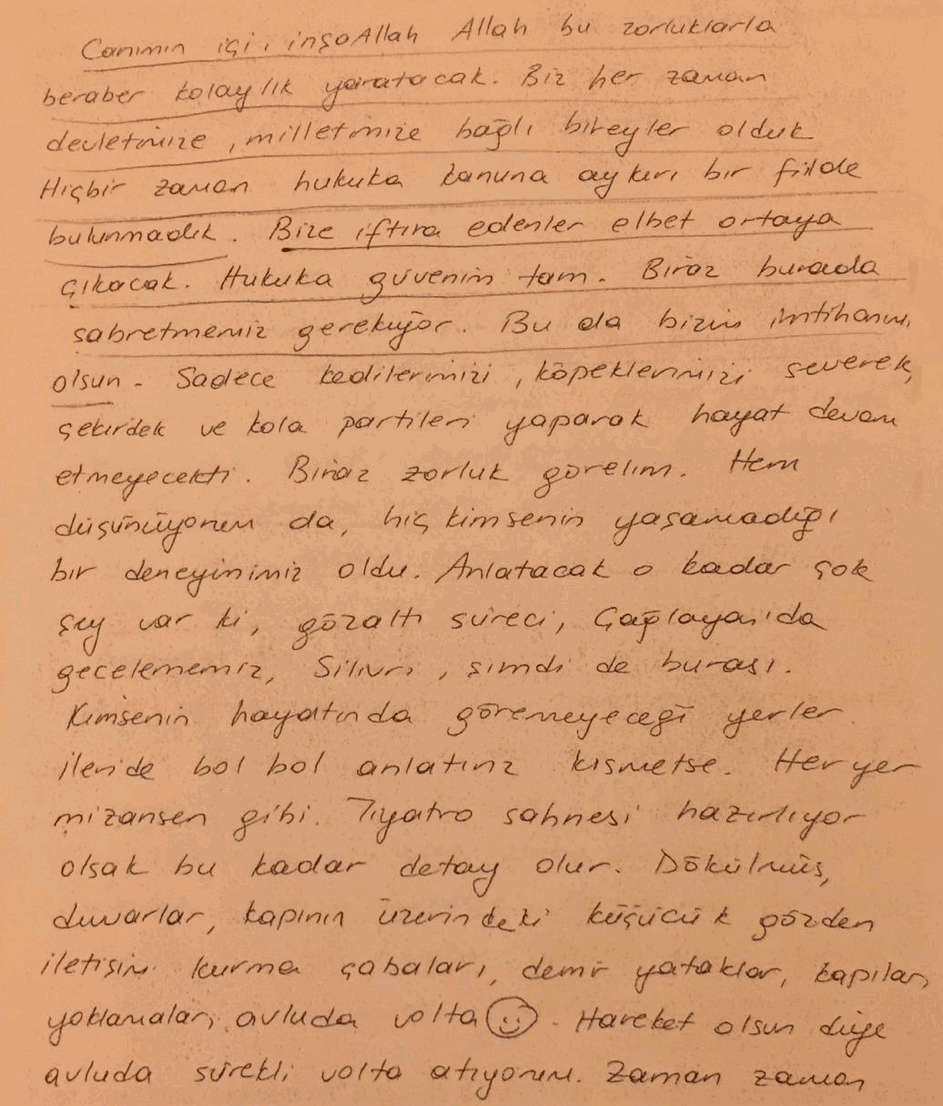 Canımın içi, inşaAllah Allah bu zorluklarla
beraber kolaylık yaratacak. Biz her zaman
devletimize, milletimize bağlı bireyler olduk
Hiçbir zaman hukuka kanuna aykırı bir fiilde
bulunmadık. Bize iftira edenler elbet ortaya
çıkacak. Hukuka güvenim tam. Biraz burada
sabretmemiz gerekiyor. Bu da bizim imtihanımız
olsun. Sadece kedilerimizi, köpeklerimizi severek,
çekirdek ve kola partileri yaparak hayat devam
etmeyecekti. Biraz zorluk görelim. Hem
düşünüyorum da, hiç kimsenin yaşamadığı
bir deneyimimiz oldu. Anlatacak o kadar çok
şey var ki, gözaltı süreci, Çağlayan'da
gecelememiz, Silivri, şimdi de burası.
Kimsenin hayatında göremeyeceği yerler
ileride bol bol anlatırız kısmetse. Her yer
mizansen gibi. Tiyatro sahnesi hazırlıyor
olsak bu kadar detay olur. Dökülmüş,
duvarlar, kapının üzerindeki küçücük gözden
iletişim kurma çabaları, demir yataklar, kapılar,
yoklamalar, avluda volta ☺. Hareket olsun diye
avluda sürekli volta atıyorum. Zaman zaman